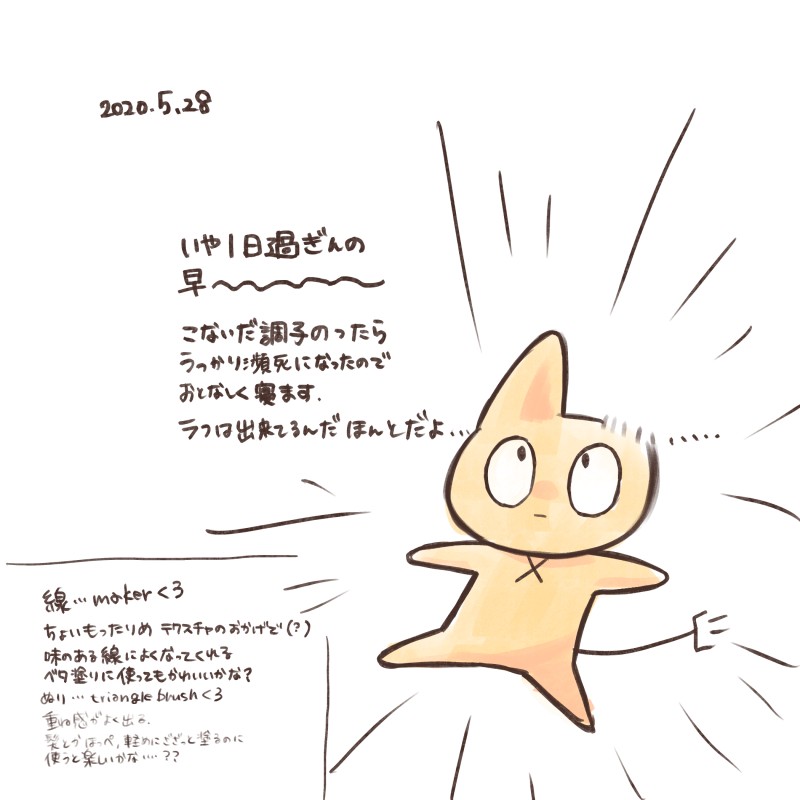 2020.5.28
いや1日過ぎんの
早〜〜〜〜
こないだ調子のったら
うっかり瀕死になったので
おとなしく寝ます.
ラフは出来てるんだ ほんとだよ… ……
線… maker<3
ちょいもったりめ テクスチャのおかげで(?)
味のある線によくなってくれる
ベタ塗りに使ってもかわいいかな?
ぬり… triangle blush<3
重ね感がよく出る.
髪とか ほっぺ, 軽めにざざっと塗るのに
使うと楽しいかな…??